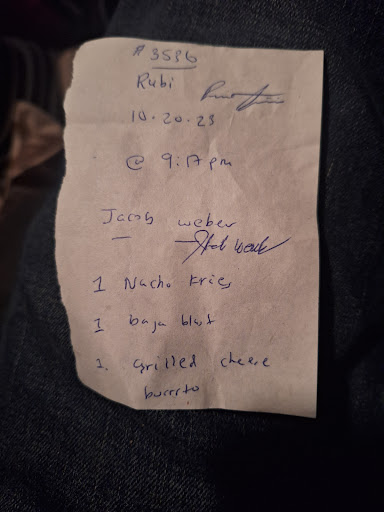 # 3536
Rubi
10.20.23
@ 9:17pm
Jacob weber
1 Nacho Fries
1 baja blast
1. grilled cheese
burrito